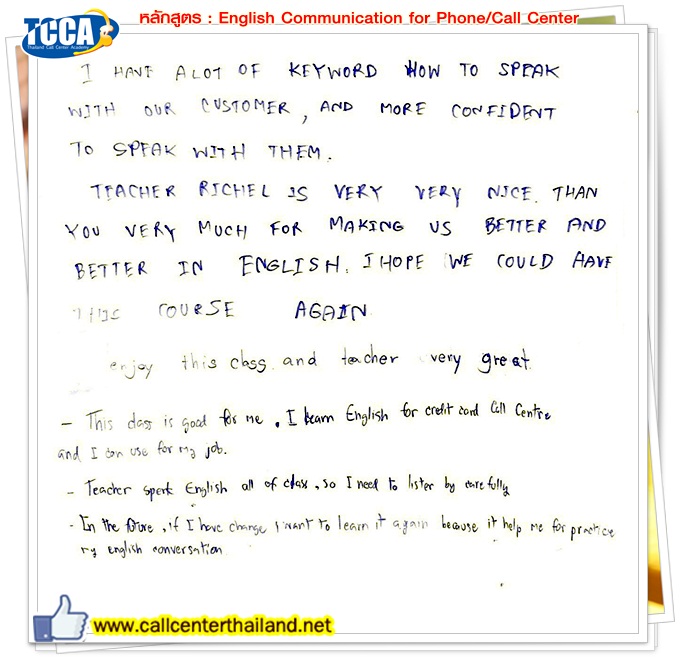 หลักสูตร : English Communication for Phone/Call Center
TCCA
Thailand Call Center Academy
I HAVE A LOT OF KEYWORD HOW TO SPEAK
WITH OUR CUSTOMER, AND MORE CONFIDENT
TO SPEAK WITH THEM.
TEACHER RICHEL IS VERY VERY NICE. THAN
YOU VERY MUCH FOR MAKING US BETTER AND
BETTER IN ENGLISH. I HOPE WE COULD HAVE
THIS COURSE AGAIN
enjoy this class. and teacher very great.
- This class is good for me, I learn English for credit card Call Centre
and I can use for my job.
- Teacher speak English all of class, so I need to lister by carefully
- In the future, if I have change I want to learn it again because it help me for practice
my english conversation.
www.callcenterthailand.net